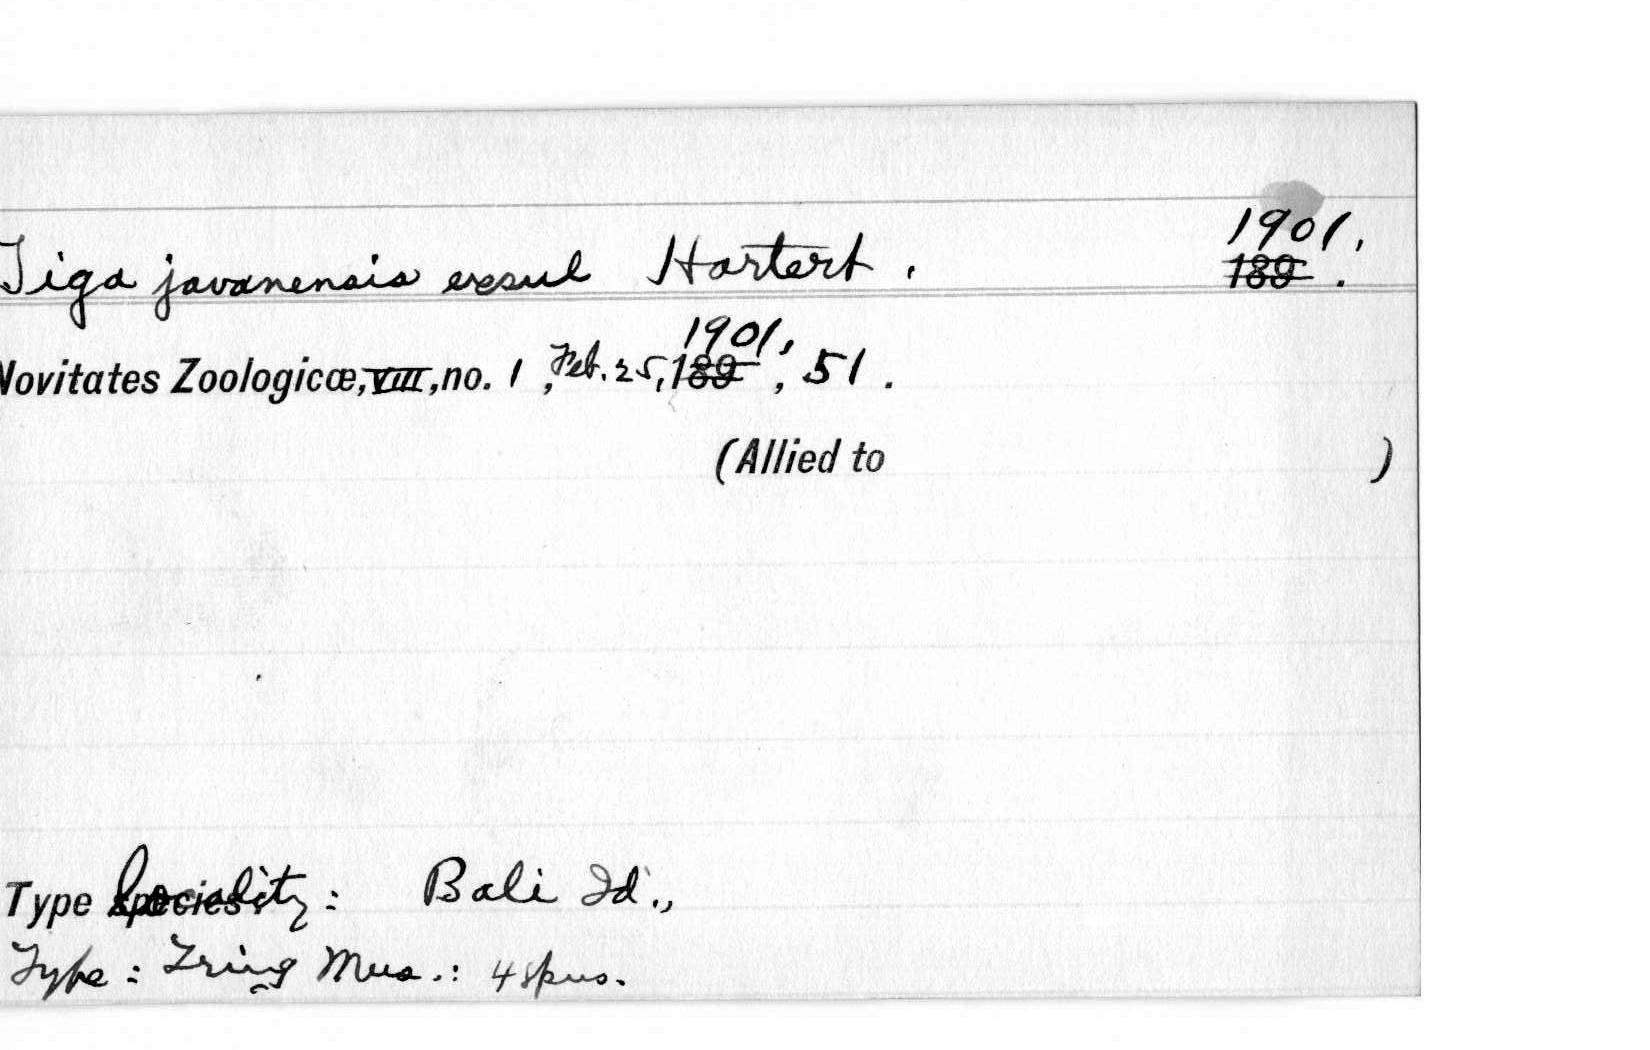 1901.
Tiga javanensis exsul Hartert. 189 .
Novitates Zoologicæ, VIII, no. 1, Feb. 25, 1901, 189 , 51.
(Allied to )
Type species: locality: Bali Id.,
Type: Tring Mus.: 4 spns.